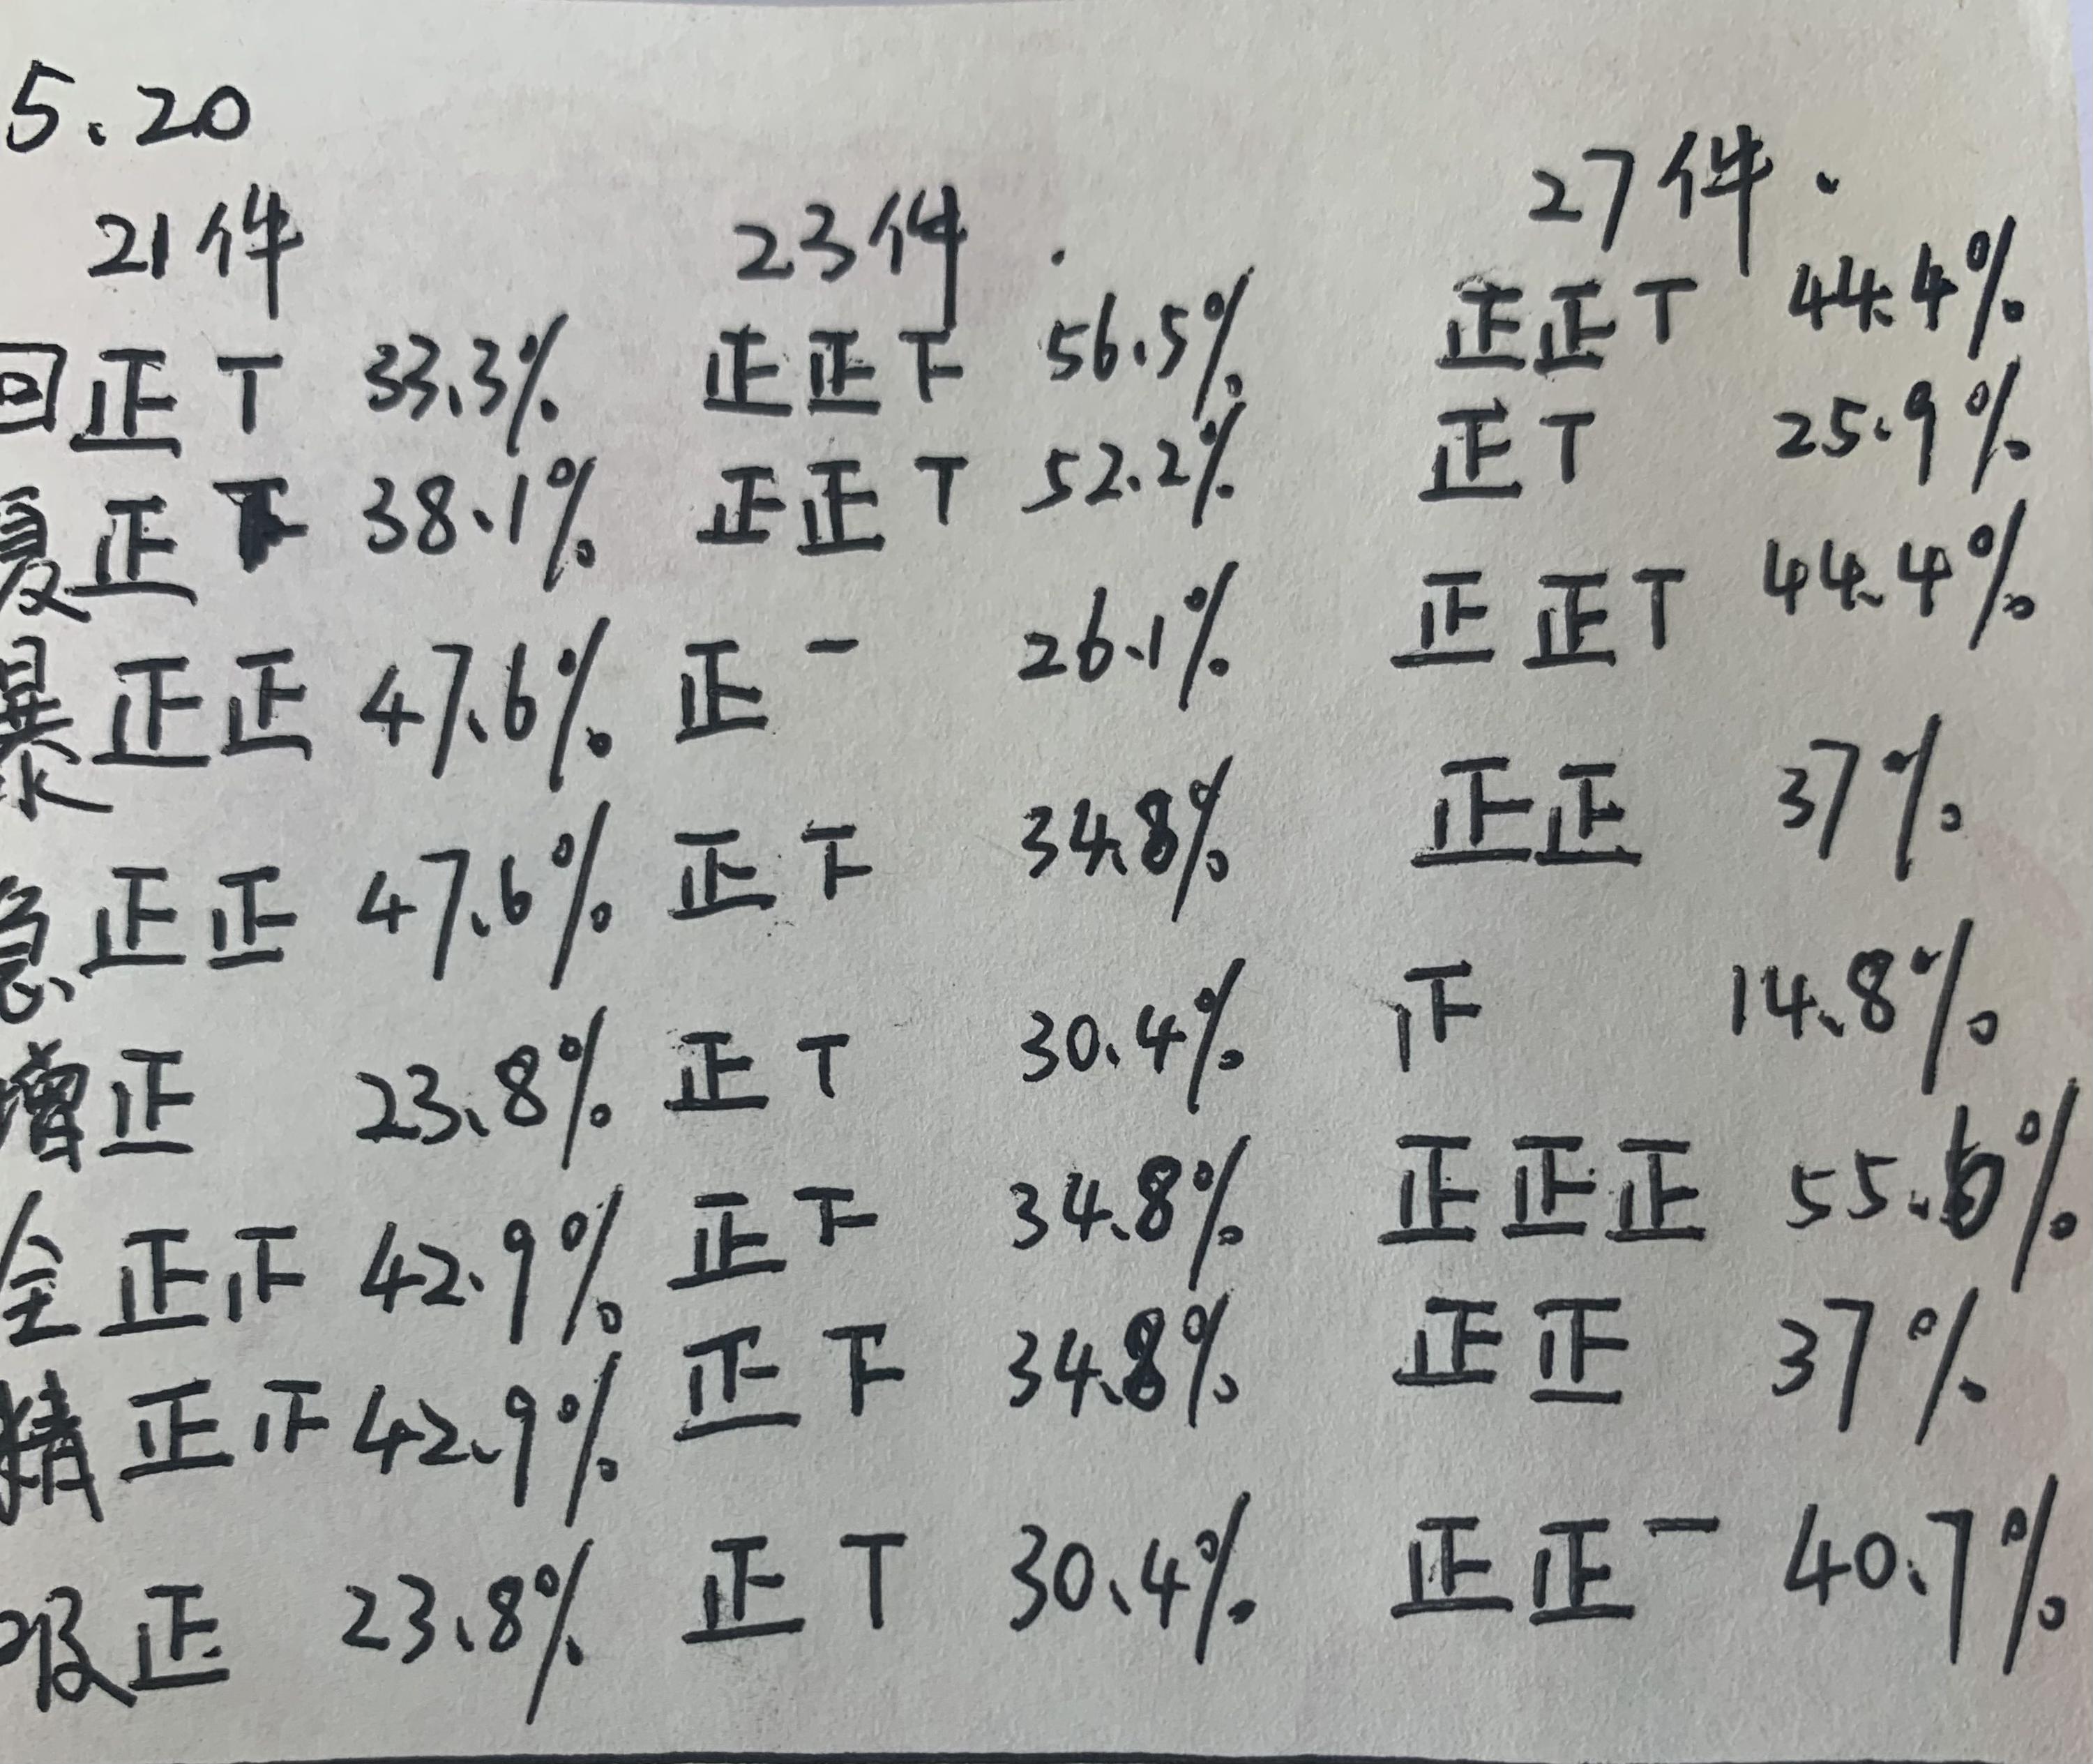 5.20
21件 23件. 27件.
回正丅 33.3% 正正下 56.5% 正正丅 44.4%
复正下 38.1% 正正丅 52.2% 正丅 25.9%
暴正正 47.6% 正一 26.1% 正正丅 44.4%
急正正 47.6% 正下 34.8% 正正 37%
增正 23.8% 正丅 30.4% 止 14.8%
全正止 42.9% 正下 34.8% 正正正 55.6%
精正止 42.9% 正下 34.8% 正正 37%
吸正 23.8% 正丅 30.4% 正正一 40.7%